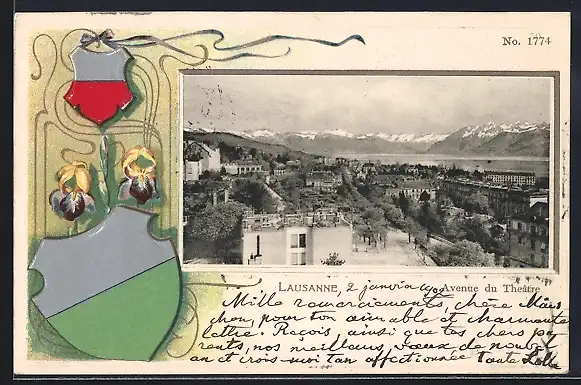 No. 1774
LAUSANNE, 2 janvier Avenue du Théâtre
Mille remerciements, chère
chen, pour ton aimable et charmante
lettre. Reçois, ainsi que tes chers pa
rents, nos meilleurs vœux de nouvel
an et crois-moi ton affectionnée Tante Lolla